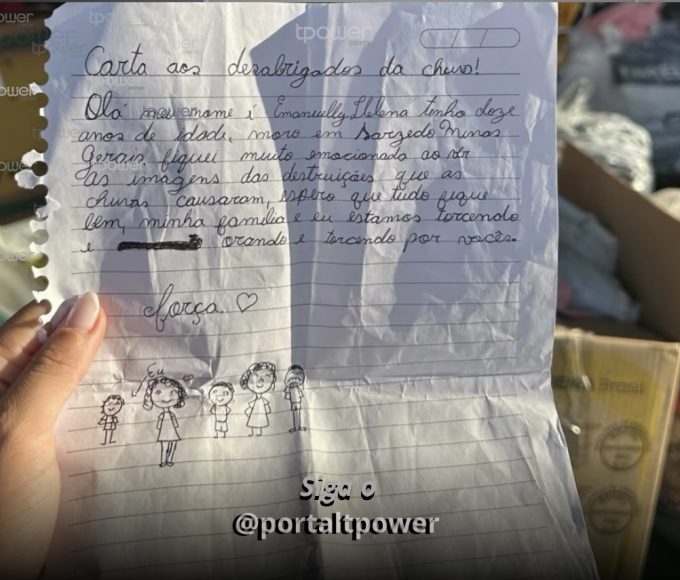 Carta aos desabrigados da chuva!
Olá meu nome é Emanuelly Helena tenho doze
anos de idade, moro em Sarzedo Minas
Gerais fiquei muito emocionada ao ver
as imagens das destruições que as
chuvas causaram, espero que tudo fique
bem, minha família e eu estamos torcendo
e orando e torcendo por vocês.
força. ♡
Eu
Brasil
Siga o
@portaltpower
tpower